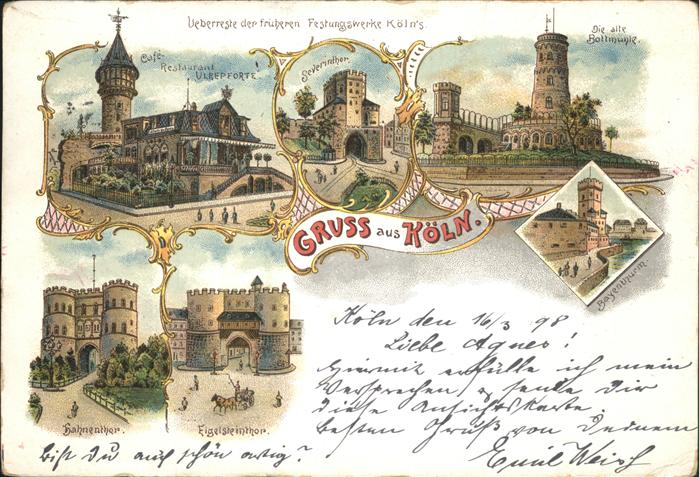 Ueberreste der früheren Festungswerke Köln's.
Café-
Restaurant
ULREPFORTE
Severinthor.
Die alte
Bottmühle.
GRUSS aus KÖLN.
Bayenthurm.
Hahnenthor.
Eigelsteinthor.
Köln den 16/3 98
Liebe Agnes!
Hiermit erfülle ich mein
Versprechen u sende Dir
diese Ansichtskarte.
besten Gruß von Deinem
Emil Weish
Bist Du auch schön artig?